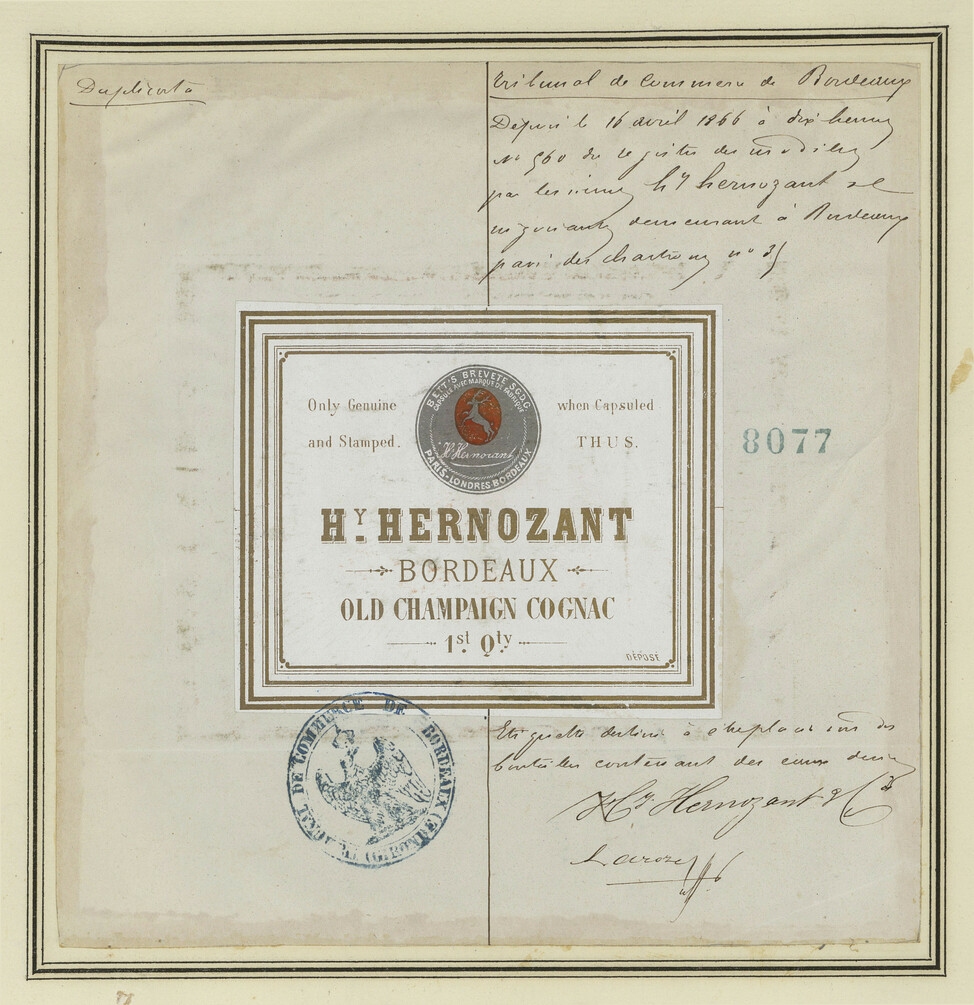 Duplicata
Tribunal de Commerce de Bordeaux
Déposé le 16 avril 1866 à dix heures
No 560 du registre des modèles
par les sieurs Hy hernozant &
negociants demeurant à Bordeaux
pavé des chartrons no 35
BETTS BREVETÉ S.G.D.G.
CAPSULE AVEC MARQUE DE FABRIQUE
Only Genuine
when Capsuled
and Stamped.
THUS.
Hy Hernozant
PARIS-LONDRES-BORDEAUX
8077
HY. HERNOZANT
BORDEAUX
OLD CHAMPAIGN COGNAC
1st. Qty.
DÉPOSÉ
TRIBUNAL DE COMMERCE DE BORDEAUX (GIRONDE)
Etiquette destinée à être placée sur des
bouteilles contenant des eaux de vie
Hy Hernozant & Cie